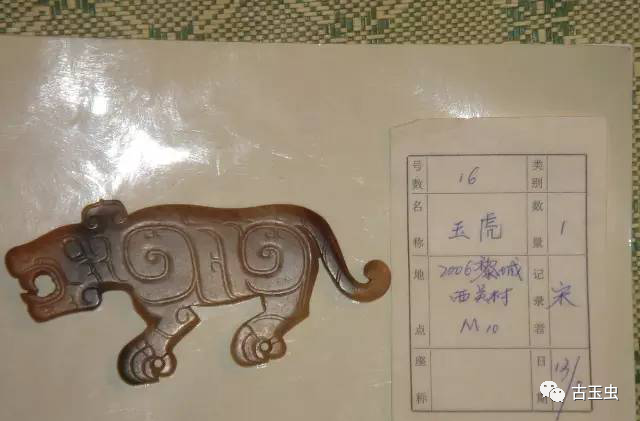 号数 16 类别
名称 玉虎 数量 1
地点 2006黎城 记录者 宋
西关村
M10
座标 日期 13/
古玉虫